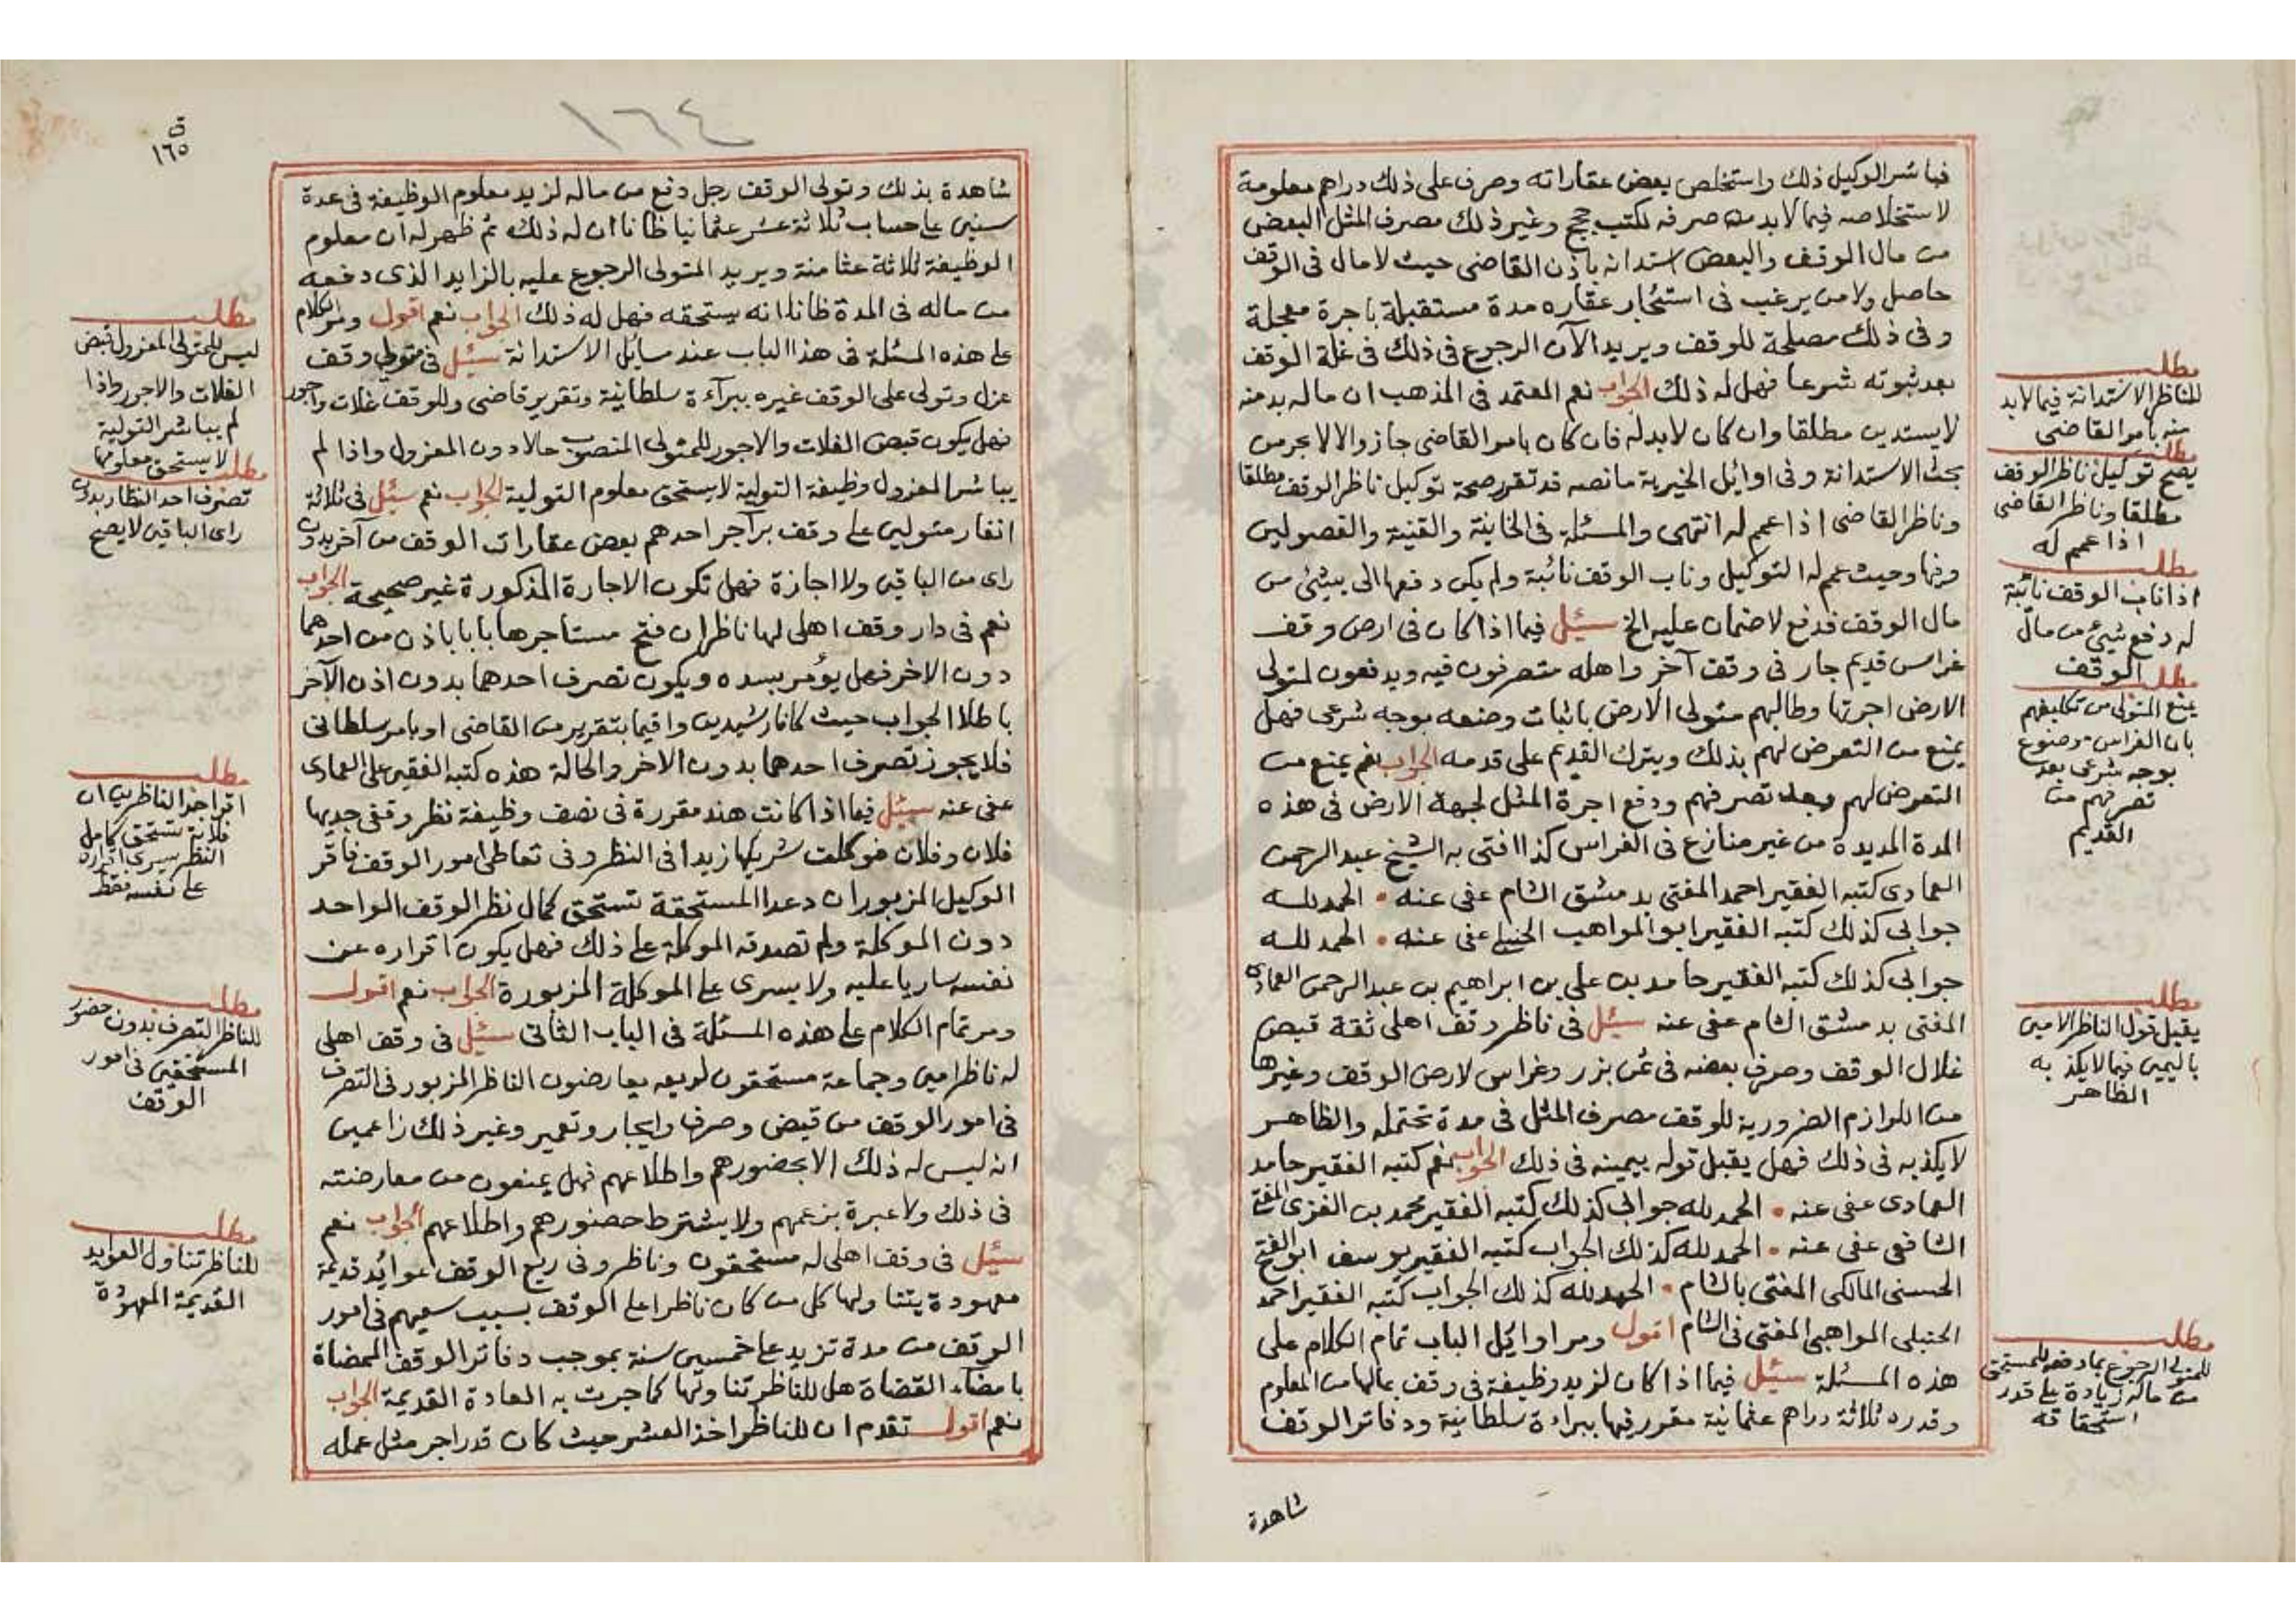 فباشر الوكيل ذلك واستخلص بعض عقاراته وصرف على ذلك دراهم معلومة
لاستخلاصه فيما لابد من صرفه لكتب حجج وغير ذلك مصرف المثل البعض
من مال الوقف والبعض استدانه باذن القاضى حيث لا مال فى الوقف
حاصل ولا من يرغب فى استئجار عقاره مدة مستقبلة باجرة معجلة
وفى ذلك مصلحة للوقف ويريد الآن الرجوع فى ذلك فى غلة الوقف
بعد ثبوته شرعا فهل له ذلك الجواب نعم المعتمد فى المذهب ان ماله بد منه
لا يستدين مطلقا وان كان لابد له فان كان بامر القاضى جاز والا لا بحر من
بحث الاستدانة وفى اوايل الخيرية ما نصه قد تقرر صحة توكيل ناظر الوقف مطلقا
وناظر القاضى اذا عمم له انتهى والمسئلة فى الخانية والقنية والفصولين
وفيها وحيث عمم له التوكيل وناب الوقف نائبة ولم يكن دفعها الى بشئ من
مال الوقف فدفع لا ضمان عليه الخ سئل فيما اذا كان فى ارض وقف
غراس قديم جار فى وقف آخر واهله متصرفون فيه ويدفعون لمتولى
الارض اجرتها وطالبهم متولى الارض باثبات وضعه بوجه شرعى فهل
يمنع من التعرض لهم بذلك ويترك القديم على قدمه الجواب نعم يمنع من
التعرض لهم وبعد تصرفهم ودفع اجرة المثل لجهة الارض فى هذه
المدة المديدة من غير منازع فى الغراس كذا افتى به الشيخ عبد الرحمن
العمادى كتبه الفقير احمد المفتى بدمشق الشام عفى عنه • الحمد لله
جوابى كذلك كتبه الفقير ابو المواهب الحنبلى عفى عنه • الحمد لله
جوابى كذلك كتبه الفقير حامد بن على بن ابراهيم بن عبد الرحمن العمادى
المفتى بدمشق الشام عفى عنه سئل فى ناظر وقف اهلى ثقة قبض
غلال الوقف وصرف بعضه فى ثمن بزر وغراس لارض الوقف وغيرها
من اللوازم الضرورية للوقف مصرف المثل فى مدة تحتمله والظاهر
لا يكذبه فى ذلك فهل يقبل قوله بيمينه فى ذلك الجواب نعم كتبه الفقير حامد
العمادى عفى عنه • الحمد لله جوابى كذلك كتبه الفقير محمد بن الغزى المفتى
الشافعى عفى عنه • الحمد لله كذلك الجواب كتبه الفقير يوسف ابو الفتح
الحسنى المالكى المفتى بالشام • الحمد لله كذلك الجواب كتبه الفقير احمد
الحنبلى المواهبى المفتى فى الشام اقول ومر اوايل الباب تمام الكلام على
هذه المسئلة سئل فيما اذا كان لزيد وظيفة فى وقف بمالها من المعلوم
وقدره ثلاثة دراهم عثمانية مقرر فيها ببراءة سلطانية ودفاتر الوقف
شاهدة
مطلب
للناظر الاستدانة فيما لابد
منه بامر القاضى
مطلب
يصح توكيل ناظر الوقف
مطلقا وناظر القاضى
اذا عمم له
مطلب
اذا ناب الوقف نائبة
له دفع شئ من مال
الوقف
مطلب
يمنع المتولى من تكليفهم
بان الغراس موضوع
بوجه شرعى بعد
تصرفهم من
القديم
مطلب
يقبل قول الناظر الامين
باليمين فيما لا يكذبه
الظاهر
مطلب
للمتولى الرجوع بما دفعه للمستحق
من ماله زيادة على قدر
استحقاقه
١٦٤
ق
١٦٥
شاهدة بذلك وتولى الوقف رجل دفع من ماله لزيد معلوم الوظيفة فى عدة
سنين على حساب ثلاثة عشر عثمانيا ظانا ان له ذلك ثم ظهر له ان معلوم
الوظيفة ثلاثة عثامنة ويريد المتولى الرجوع عليه بالزايد الذى دفعه
من ماله فى المدة ظانا انه يستحقه فهل له ذلك الجواب نعم اقول ومر الكلام
على هذه المسئلة فى هذا الباب عند مسايل الاستدانة سئل فى متولى وقف
عزل وتولى على الوقف غيره ببرآءة سلطانية وتقرير قاضى وللوقف غلات واجور
فهل يكون قبض الغلات والاجور للمتولى المنصوب حالا دون المعزول واذا لم
يباشر المعزول وظيفة التولية لا يستحق معلوم التولية الجواب نعم سئل فى ثلاثة
انفار متولين على وقف برآجر احدهم بعض عقارات الوقف من آخر بدون
راى من الباقين ولا اجازة فهل تكون الاجارة المذكورة غير صحيحة الجواب
نعم فى دار وقف اهلى لها ناظران فتح مستاجرها بابا باذن من احدهما
دون الاخر فهل يؤمر بسده ويكون تصرف احدهما بدون اذن الآخر
باطلا الجواب حيث كانا رشيدين واقيما بتقرير من القاضى او بامر سلطانى
فلا يجوز تصرف احدهما بدون الاخر والحالة هذه كتبه الفقير على العمادى
عفى عنه سئل فيما اذا كانت هند مقررة فى نصف وظيفة نظر وقفى جديها
فلان وفلان فوكلت شريكها زيدا فى النظر وفى تعاطى امور الوقف فاقر
الوكيل المزبور ان دعدا المستحقة تستحق كمال نظر الوقف الواحد
دون الموكلة ولم تصدقه الموكلة على ذلك فهل يكون اقراره عن
نفسه ساريا عليه ولا يسرى على الموكلة المزبورة الجواب نعم اقول
ومر تمام الكلام على هذه المسئلة فى الباب الثانى سئل فى وقف اهلى
له ناظر امين وجماعة مستحقون لريعه يعارضون الناظر المزبور فى التصرف
فى امور الوقف من قبض وصرف وايجار وتعمير وغير ذلك زاعمين
انه ليس له ذلك الا بحضورهم واطلاعهم فهل يمنعون من معارضته
فى ذلك ولا عبرة بزعمهم ولا يشترط حضورهم واطلاعهم الجواب نعم
سئل فى وقف اهلى له مستحقون وناظر وفى ريع الوقف عوائد قديمة
معهودة يتناولها كل من كان ناظرا على الوقف بسبب سعيهم فى امور
الوقف من مدة تزيد على خمسين سنة بموجب دفاتر الوقف الممضاة
بامضآء القضاة هل للناظر تناولها كما جرت به العادة القديمة الجواب
نعم اقول تقدم ان للناظر اخذ العشر حيث كان قدر اجر مثل عمله
مطلب
ليس للمتولى المعزول قبض
الغلات والاجور واذا
لم يباشر التولية
لا يستحق معلومها
مطلب
تصرف احد النظار بدون
راى الباقين لا يصح
مطلب
اقر احد الناظرين ان
فلانة تستحق كامل
النظر يسرى اقراره
على نفسه فقط
مطلب
للناظر التصرف بدون حضور
المستحقين فى امور
الوقف
مطلب
للناظر تناول العوايد
القديمة المعهودة